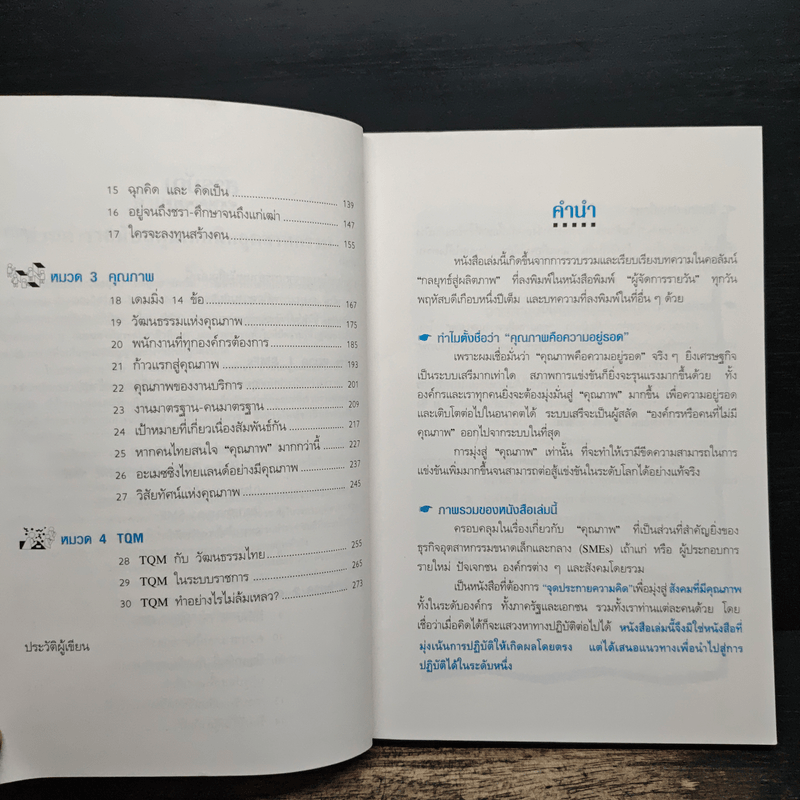 15 ฉุกคิด และ คิดเป็น 139
16 อยู่จนถึงชรา-ศึกษาจนถึงแก่เฒ่า 147
17 ใครจะลงทุนสร้างคน 155
หมวด 3 คุณภาพ
18 เดมมิ่ง 14 ข้อ 167
19 วัฒนธรรมแห่งคุณภาพ 175
20 พนักงานที่ทุกองค์กรต้องการ 185
21 ก้าวแรกสู่คุณภาพ 193
22 คุณภาพของงานบริการ 201
23 งานมาตรฐาน-คนมาตรฐาน 209
24 เป้าหมายที่เกี่ยวเนื่องสัมพันธ์กัน 217
25 หากคนไทยสนใจ “คุณภาพ” มากกว่านี้ 227
26 อะเมซซิ่งไทยแลนด์อย่างมีคุณภาพ 237
27 วิสัยทัศน์แห่งคุณภาพ 245
หมวด 4 TQM
28 TQM กับ วัฒนธรรมไทย 255
29 TQM ในระบบราชการ 265
30 TQM ทำอย่างไรไม่ล้มเหลว? 273
ประวัติผู้เขียน
คำนำ
หนังสือเล่มนี้เกิดขึ้นจากการรวบรวมและเรียบเรียงบทความในคอลัมน์
“กลยุทธ์สู่ผลิตภาพ” ที่ลงพิมพ์ในหนังสือพิมพ์ “ผู้จัดการรายวัน” ทุกวัน
พฤหัสบดีเกือบหนึ่งปีเต็ม และบทความที่ลงพิมพ์ในที่อื่น ๆ ด้วย
ทำไมตั้งชื่อว่า “คุณภาพคือความอยู่รอด”
เพราะผมเชื่อมั่นว่า “คุณภาพคือความอยู่รอด” จริง ๆ ยิ่งเศรษฐกิจ
เป็นระบบเสรีมากเท่าใด สภาพการแข่งขันก็ยิ่งจะรุนแรงมากขึ้นด้วย ทั้ง
องค์กรและเราทุกคนยิ่งจะต้องมุ่งมั่นสู่ “คุณภาพ” มากขึ้น เพื่อความอยู่รอด
และเติบโตต่อไปในอนาคตได้ ระบบเสรีจะเป็นผู้สลัด “องค์กรหรือคนที่ไม่มี
คุณภาพ” ออกไปจากระบบในที่สุด
การมุ่งสู่ “คุณภาพ” เท่านั้น ที่จะทำให้เรามีขีดความสามารถในการ
แข่งขันเพิ่มมากขึ้นจนสามารถต่อสู้แข่งขันในระดับโลกได้อย่างแท้จริง
ภาพรวมของหนังสือเล่มนี้
ครอบคลุมในเรื่องเกี่ยวกับ “คุณภาพ” ที่เป็นส่วนที่สำคัญยิ่งของ
ธุรกิจอุตสาหกรรมขนาดเล็กและกลาง (SMEs) เถ้าแก่ หรือ ผู้ประกอบการ
รายใหม่ ปัจเจกชน องค์กรต่าง ๆ และสังคมโดยรวม
เป็นหนังสือที่ต้องการ “จุดประกายความคิด”เพื่อมุ่งสู่ สังคมที่มีคุณภาพ
ทั้งในระดับองค์กร ทั้งภาครัฐและเอกชน รวมทั้งเราท่านแต่ละคนด้วย โดย
เชื่อว่าเมื่อคิดได้ก็จะแสวงหาทางปฏิบัติต่อไปได้ หนังสือเล่มนี้จึงมิใช่หนังสือที่
มุ่งเน้นการปฏิบัติให้เกิดผลโดยตรง แต่ได้เสนอแนวทางเพื่อนำไปสู่การ
ปฏิบัติได้ในระดับหนึ่ง